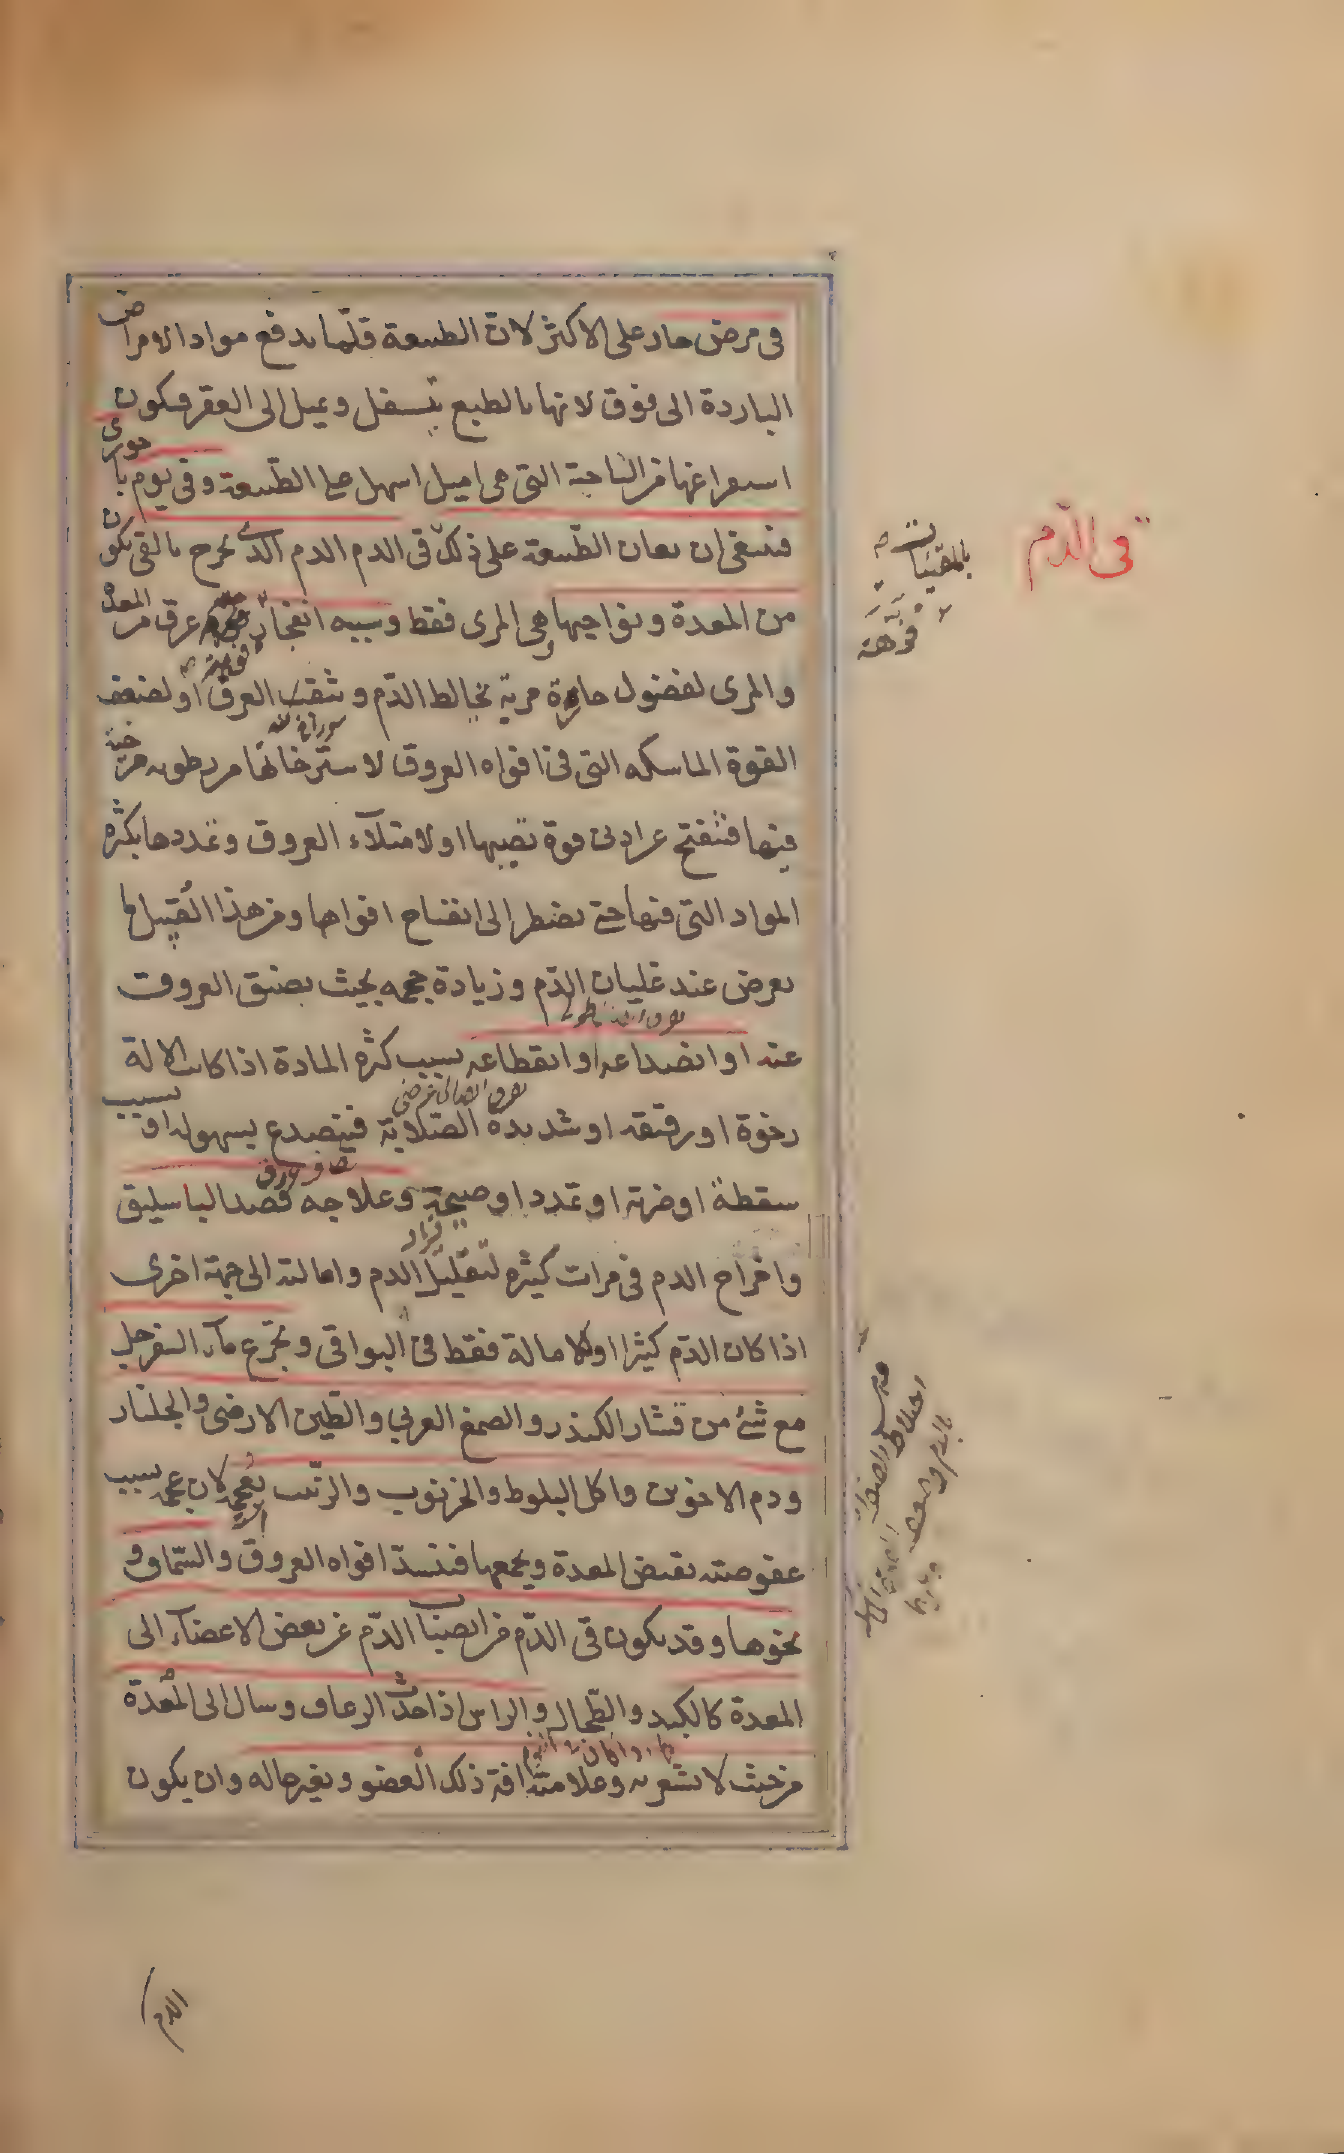 فى مرض حار على الاكثر لان الطبيعة قلما يدفع مواد الامراض
الباردة الى فوق لانها بالطبع يتسفل ويميل الى القعر فيكون
استفراغها من الناحية التى هى اميل اسهل على الطبيعة وفى يوم باحورى
فينبغى ان يعان الطبيعة على ذلك قى الدم الدم الذى يخرج بالقى يكون
من المعدة ونواحيها وهى المرى فقط وسببه انفجار عرق من المعدة
والمرى لفضول حارة مرية يخالط الدم ويثقب العرق او لضعف
القوة الماسكه التى فى افواه العروق لاسترخائها من رطوبه مرخية
فيها فتنفتح عن ادنى قوة تصيبها او لامتلآء العروق وتمددها بكثرة
المواد التى فيها حتى يضطر الى انفتاح افواهها ومن هذا القبيل ما
يعرض عند غليان الدم وزيادة حجمه بحيث يضيق العروق
عنه او انصداعه او انقطاعه بسبب كثرة المادة اذا كانت الالة
رخوة او رقيقه او شديدة الصلابة فيتصدع بسهوله او بسبب
سقطة او ضربة او تمدد او صيحة وعلاجه فصد الباسليق
واخراج الدم فى مرات كثيرة لتقليل الدم وامالته الى جهة اخرى
اذا كان الدم كثيرا او للامالة فقط فى البواقى وتجرع مآء السفرجل
مع شئ من قشار الكندر والصمغ العربى والطين الارمنى والجلنار
ودم الاخوين واكل البلوط والخرنوب والزبيب بعجمه لان عجمه بسبب
عفوصته يقبض المعدة ويجمعها فينسد افواه العروق والسماق و
نحوها وقد يكون قى الدم من انصباب الدم عن بعض الاعضآء الى
المعدة كالكبد والطحال والراس اذا حدث الرعاف وسال الى المعدة
من حيث لا يشعر به وعلامته افة ذلك العضو وتغير حاله وان يكون
قى الدم
بالمقيئات
فوهة
الدم